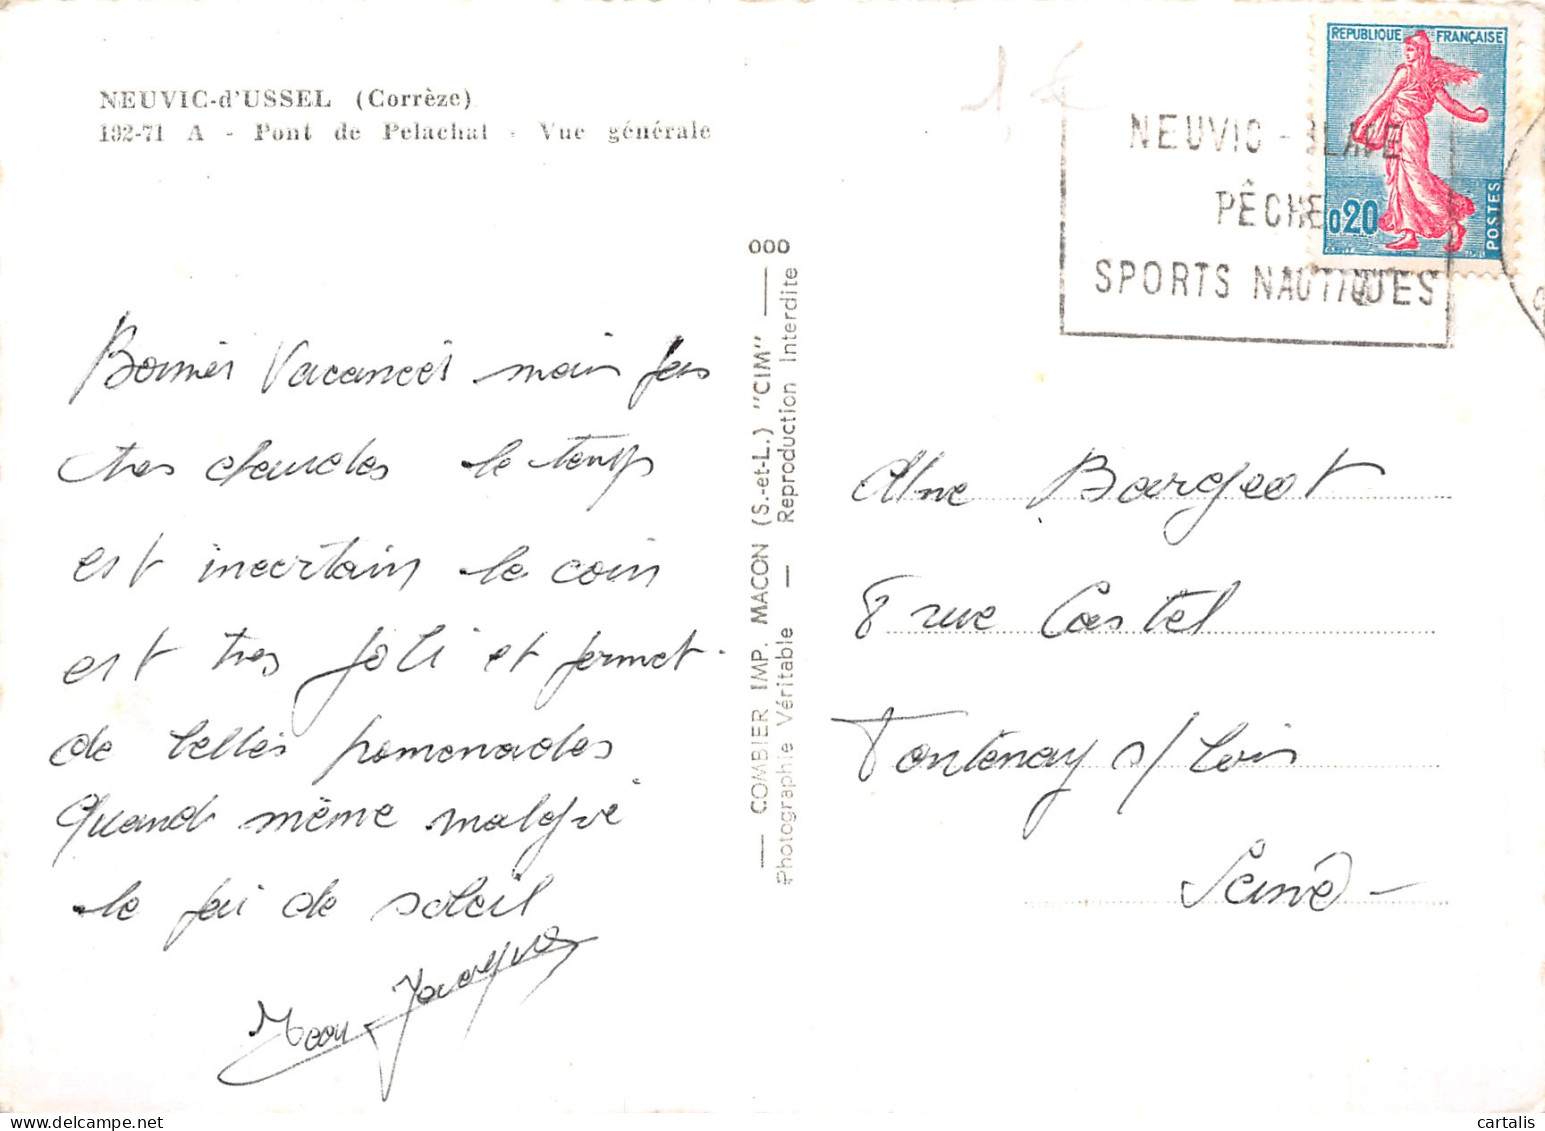 NEUVIC-d'USSEL (Corrèze)
192-71 A - Pont de Pelachat - Vue générale
1€
NEUVIC - BLAVE
PÊCHE
SPORTS NAUTIQUES
REPUBLIQUE FRANÇAISE
0,20
POSTES
Bonnes Vacances mais pas
tres chaudes le temps
est incertain le coin
est tres joli et permet
de belles promenades
Quand même malgré
le peu de soleil
Jacques
000
COMBIER IMP. MACON (S.-et-L.) "CIM"
Photographie Véritable — Reproduction Interdite
Mme Bargeot
8 rue Castel
Fontenay s/ bois
Seine -
cartalis